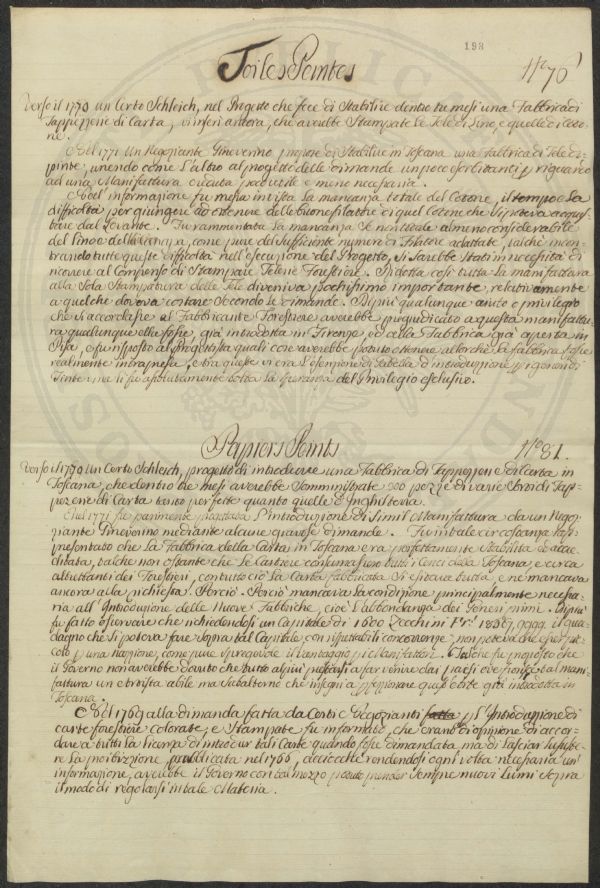 193
Toiles Peintes N.º 76
Verso il 1770 un Certo Schleich, nel Progetto che fece di Stabilire dentro tre mesi una Fabbrica di
Tappezzerie di Carta, v'inserì ancora, che averebbe Stampate le Tele di Lino, e quelle di Coto-
ne.
Nel 1771 Un Negoziante Ginevrino propose di Stabilire in Toscana una Fabbrica di Tele di-
pinte, unendo come l'altro al progetto delle dimande un poco esorbitanti p riguardo
ad una Manifattura creduta più utile e meno necessaria.
Nell' informazione fu messa in vista la mancanza totale del Cotone, il tempo e la
difficoltà per giungere ad ottenere delle buone filature di quel Cotone che si poteva acqui-
stare dal Levante. Fu rammentata la mancanza se non totale almeno considerabile
del Lino e della Canapa, come pure del sufficiente numero di Filatore adattate, talchè incon-
trando tutte queste difficoltà nell'esecuzione del Progetto, si sarebbe stati in necessità di
ricorrere al Compenso di Stampare Telerie Forestiere. Ridotta così tutta la manifattura
alla sola Stampatura delle Tele diveniva pochissimo importante, relativamente
a quel che doveva costare secondo le dimande. Di più qualunque aiuto e privilegio
che si accordasse al Fabbricante Forestiere averebbe pregiudicato a questa manifattu-
ra qualunque ella fosse, già introdotta in Firenze, ed alla Fabbrica già aperta in
Pisa, e fu risposto al Progettista quali cose averebbe potuto ottenere allorchè la fabbrica fosse
realmente intrapresa, e tra queste vi era l'esenzione di Gabella d'introduzione p i generi di
Tinte, ma li fu assolutamente tolta la speranza del Privilegio esclusivo.
Papiers Peints N.º 81.
Verso il 1770 Un Certo Schleich, progettò di introdurre una Fabbrica di Tappezzerie di Carta in
Toscana, che dentro tre mesi averebbe Somministrate 200 pezze di varie Sorti di Tap-
pezzerie di Carta tanto perfette quanto quelle d'Inghilterra.
Nel 1771 fu parimente progettata l'introduzione di Simil Manifattura da un Nego-
ziante Ginevrino mediante alcune gravose dimande. Fu in tale circostanza rap-
presentato che la Fabbrica della Carta in Toscana era perfettamente stabilita ed accre-
ditata, talchè non ostante che le Cartiere consumassero tutti i Cenci della Toscana, e circa
altrettanti dei Forestieri, contuttociò la Carta fabbricata si esitava tutta, e ne mancava
ancora alla richiesta. Perciò - Perciò mancava la condizione principalmente necessa-
ria all'Introduzione delle Nuove Fabbriche, cioè l'abbondanza dei Generi primi. Di più
fu fatto osservare che richiedendosi un Capitale di 1600 Zecchini il gua-
dagno che si poteva fare sopra tal Capitale, con rispetto alle concorrenze non poteva che esser pic-
colo p una nazione, come pure spregevole il vantaggio p i Manifattori. Talchè fu proposto che
il Governo non averebbe dovuto che tutto al più prestarsi a far venire dai paesi ove fiorisce tal mani-
fattura un Artista abile ma Subalterno che insegni a perfezionare quest'Arte già introdotta in
Toscana.
Nel 1769 alla dimanda fatta da Certi Negozianti p l'Introduzione di
carte forestiere colorate, e Stampate fu informato, che erano di opinione di accor-
dare a tutti la licenza di introdur tali Carte quando fosse dimandata, ma di lasciar sussiste-
re la proibizione pubblicata nel 1766, acciocchè rendendosi ogni volta necessaria un'
informazione, averebbe il Governo con tal mezzo potuto prender sempre nuovi Lumi sopra
il modo di regolarsi in tale Materia.